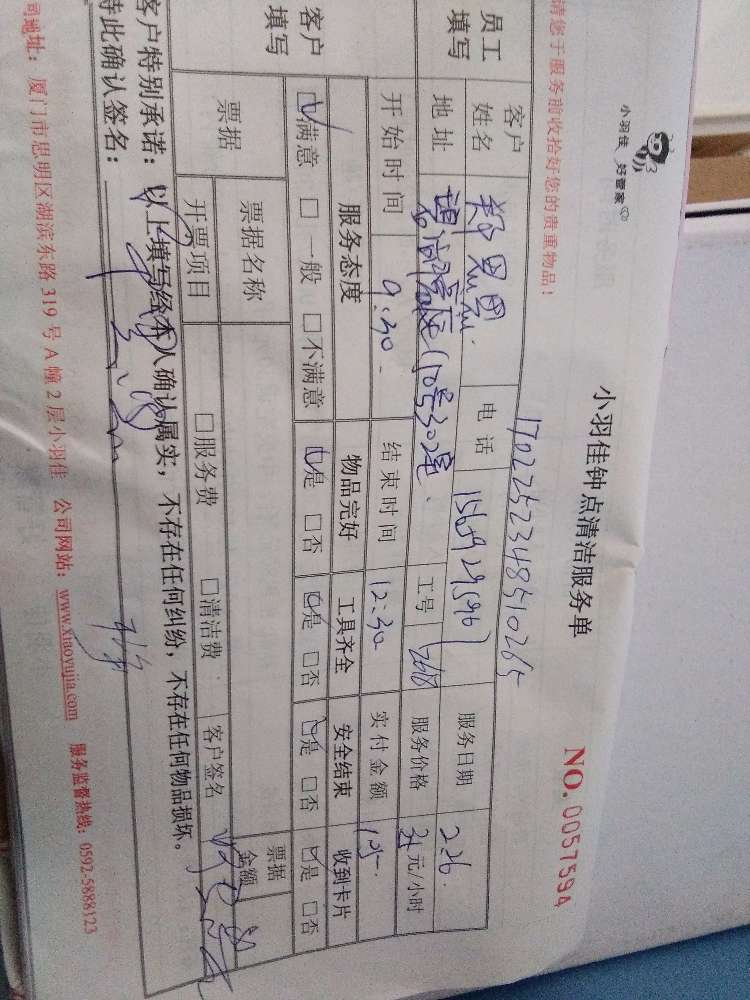 小羽佳 好管家
小羽佳钟点清洁服务单
NO. 0057594
请您于服务前收拾好您的贵重物品！
1702252348510265
员工填写
客户姓名 电话 服务日期 2.26
地址 工号 服务价格 元/小时
开始时间 9:30 结束时间 12:30 实付金额
客户填写
服务态度 物品完好 工具齐全 安全结束 收到卡片
☑满意 □一般 □不满意 ☑是 □否 ☑是 □否 ☑是 □否 ☑是 □否
票据 票据名称 票据金额
开票项目 □服务费 □清洁费 客户签名
客户特别承诺：以上填写经本人确认属实，不存在任何纠纷，不存在任何物品损坏。
特此确认签名：
司地址：厦门市思明区湖滨东路 319 号 A 幢 2 层小羽佳 公司网站：www.xiaoyujia.com 服务监督热线：0592-5888123